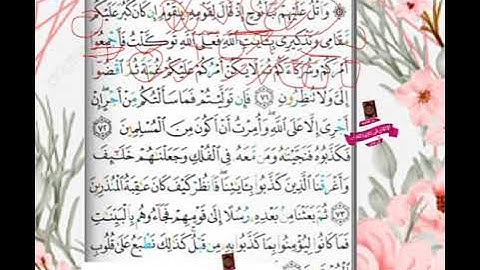 وَاتْلُ عَلَيْهِمْ نَبَأَ نُوحٍ إِذْ قَالَ لِقَوْمِهِ يَا قَوْمِ إِن كَانَ كَبُرَ عَلَيْكُم
مَّقَامِي وَتَذْكِيرِي بِآيَاتِ اللَّهِ فَعَلَى اللَّهِ تَوَكَّلْتُ فَأَجْمِعُوا
أَمْرَكُمْ وَشُرَكَاءَكُمْ ثُمَّ لَا يَكُنْ أَمْرُكُمْ عَلَيْكُمْ غُمَّةً ثُمَّ اقْضُوا
إِلَيَّ وَلَا تُنظِرُونِ ٧١ فَإِن تَوَلَّيْتُمْ فَمَا سَأَلْتُكُم مِّنْ أَجْرٍ إِنْ
أَجْرِيَ إِلَّا عَلَى اللَّهِ وَأُمِرْتُ أَنْ أَكُونَ مِنَ الْمُسْلِمِينَ ٧٢
فَكَذَّبُوهُ فَنَجَّيْنَاهُ وَمَن مَّعَهُ فِي الْفُلْكِ وَجَعَلْنَاهُمْ خَلَائِفَ
وَأَغْرَقْنَا الَّذِينَ كَذَّبُوا بِآيَاتِنَا فَانظُرْ كَيْفَ كَانَ عَاقِبَةُ الْمُنذَرِينَ
٧٣ ثُمَّ بَعَثْنَا مِن بَعْدِهِ رُسُلًا إِلَىٰ قَوْمِهِمْ فَجَاءُوهُم بِالْبَيِّنَاتِ
فَمَا كَانُوا لِيُؤْمِنُوا بِمَا كَذَّبُوا بِهِ مِن قَبْلُ كَذَٰلِكَ نَطْبَعُ عَلَىٰ قُلُوبِ